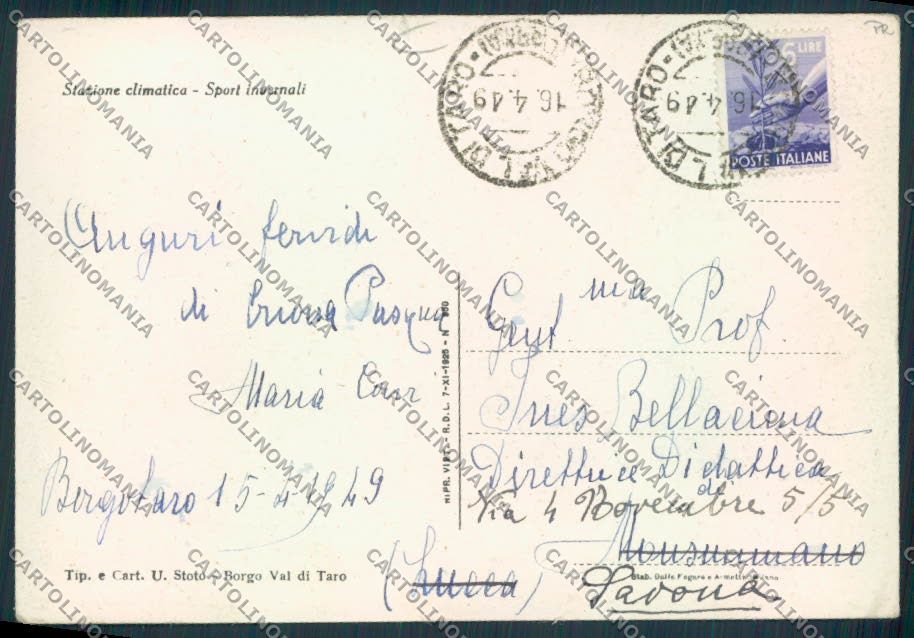 PR
Stazione climatica - Sport invernali
16.4.49
16.4.49
6 LIRE
POSTE ITALIANE
Auguri fervidi
di buona Pasqua
Maria
Borgotaro 15-4-1949
Tip. e Cart. U. Stoto - Borgo Val di Taro
RIPR. VIET. - R.D.L. 7-XI-1925 - N° 950
Gent.ma Prof.
Ines Bellacima
Direttrice Didattica
Via 4 Novembre 5/5
Monsummano
(Lucca)
Savona
Stab. Dalle Nogare e Armetti - Milano
CARTOLINOMANIA